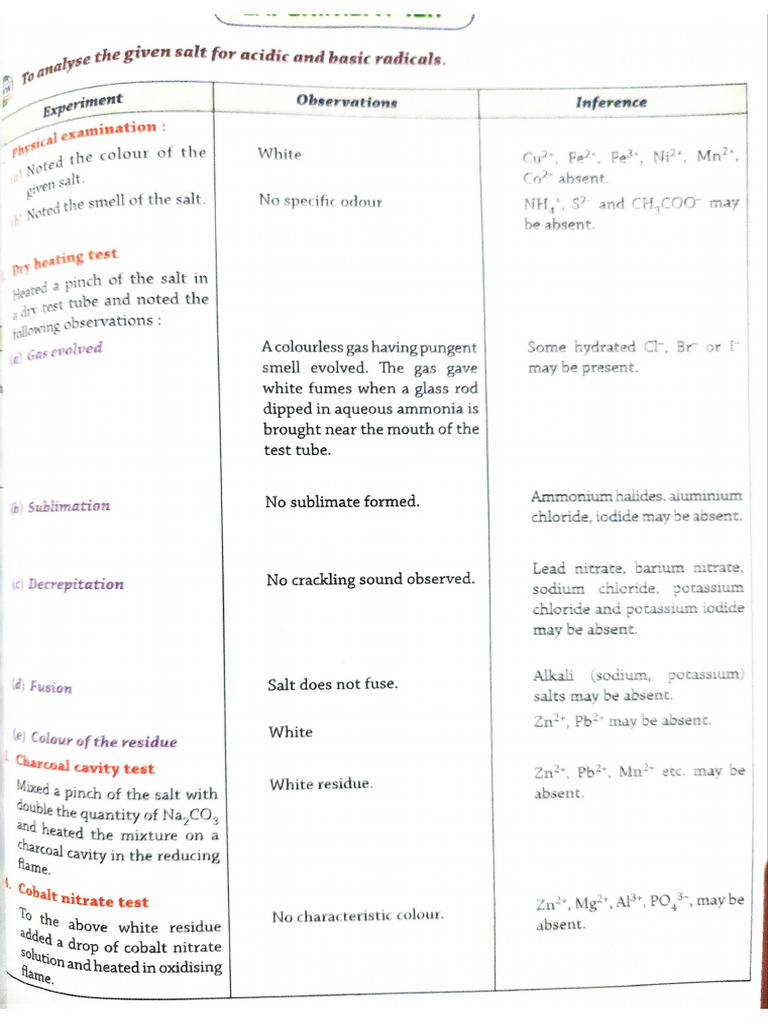 To analyse the given salt for acidic and basic radicals.
Experiment
Observations
Inference
Physical examination :
(a) Noted the colour of the
given salt.
White
Cu²⁺, Fe²⁺, Fe³⁺, Ni²⁺, Mn²⁺,
Co²⁺ absent.
(b) Noted the smell of the salt.
No specific odour
NH₄⁺, S²⁻ and CH₃COO⁻ may
be absent.
Dry heating test
Heated a pinch of the salt in
a dry test tube and noted the
following observations :
(a) Gas evolved
A colourless gas having pungent
smell evolved. The gas gave
white fumes when a glass rod
dipped in aqueous ammonia is
brought near the mouth of the
test tube.
Some hydrated Cl⁻, Br⁻ or I⁻
may be present.
(b) Sublimation
No sublimate formed.
Ammonium halides, aluminium
chloride, iodide may be absent.
(c) Decrepitation
No crackling sound observed.
Lead nitrate, barium nitrate,
sodium chloride, potassium
chloride and potassium iodide
may be absent.
(d) Fusion
Salt does not fuse.
Alkali (sodium, potassium)
salts may be absent.
(e) Colour of the residue
White
Zn²⁺, Pb²⁺ may be absent.
Charcoal cavity test
Mixed a pinch of the salt with
double the quantity of Na₂CO₃
and heated the mixture on a
charcoal cavity in the reducing
flame.
White residue.
Zn²⁺, Pb²⁺, Mn²⁺ etc. may be
absent.
4. Cobalt nitrate test
To the above white residue
added a drop of cobalt nitrate
solution and heated in oxidising
flame.
No characteristic colour.
Zn²⁺, Mg²⁺, Al³⁺, PO₄³⁻, may be
absent.